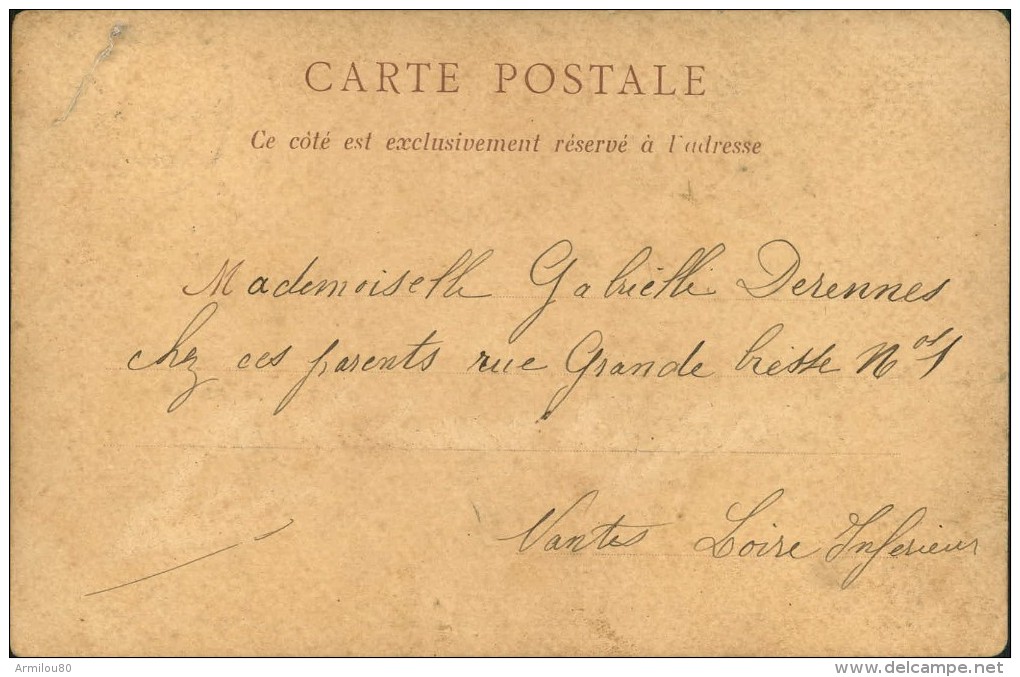 CARTE POSTALE
Ce côté est exclusivement réservé à l'adresse
Mademoiselle Gabrielle Derennes
chez ces parents rue Grande Biesse No 1
Nantes Loire Inferieur
Armilou80
www.delcampe.net